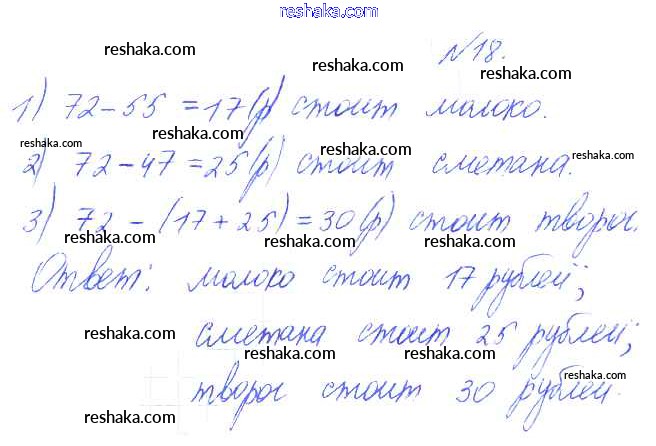 reshaka.com
reshaka.com №18.
reshaka.com reshaka.com
1) 72-55=17(р) стоит молоко.
reshaka.com reshaka.com
2) 72-47=25(р) стоит сметана. reshaka.com
reshaka.com reshaka.com
3) 72-(17+25)=30(р) стоит творог.
reshaka.com reshaka.com reshaka.com
Ответ: молоко стоит 17 рублей;
reshaka.com reshaka.com
сметана стоит 25 рублей;
reshaka.com reshaka.com reshaka.com
творог стоит 30 рублей. reshaka.com
reshaka.com reshaka.com